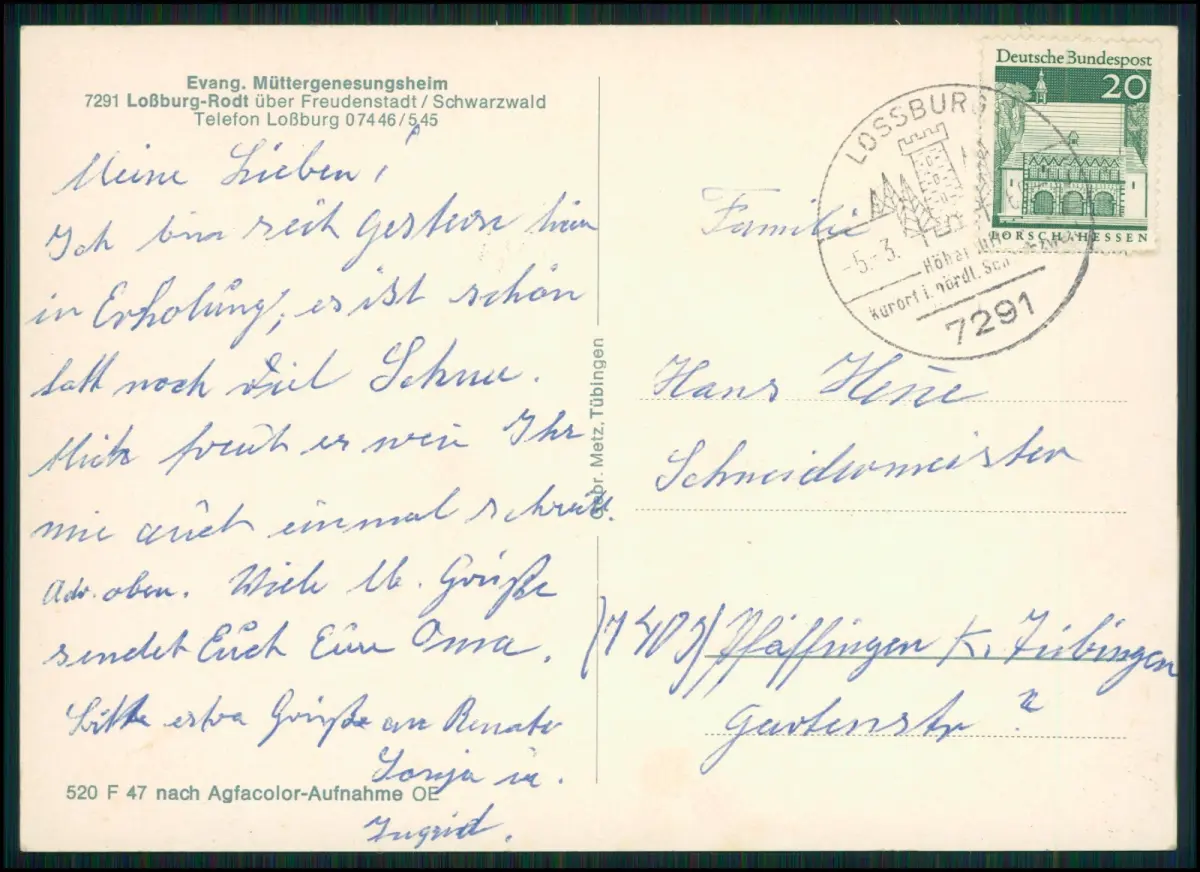 Evang. Müttergenesungsheim
7291 Loßburg-Rodt über Freudenstadt / Schwarzwald
Telefon Loßburg 07446/545
Meine Lieben!
Ich bin seit gestern hier
in Erholung, es ist schön
hatt noch viel Schnee.
Mich freut es wen Ihr
mir auch einmal schreibt.
Adr. oben. Viele lb. Grüße
sendet Euch Eure Oma.
Bitte extra Grüße an Renate
Sonja u.
Ingrid.
520 F 47 nach Agfacolor-Aufnahme OE
Gebr. Metz, Tübingen
Deutsche Bundespost
20
LORSCH/HESSEN
LOSSBURG
-5.-3.
Kurort i. nördl. Sch
7291
Familie
Hans
Schneidermeister
(7403) Pfäffingen K. Tübingen
Gartenstr ?